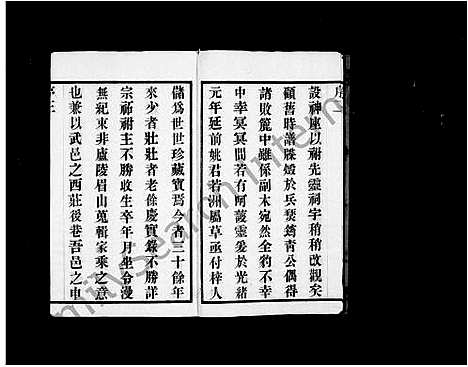 序二
設神座以祔先靈祠宇稍稍改觀矣
顧舊時譜牒燬於兵燹錡青公偶得
諸敗簏中雖係副本宛然全豹不幸
中幸冥冥間若有阿護靈爰於光緒
元年延前姚君若洲屬草亟付梓人
儲為世世珍藏寶焉今者三十餘年
來少者壯壯者老徐慶實繇不勝詳
宗祏祔主不勝收生卒年月坐令漫
無紀束非盧陵眉山蒐輯家乘之意
也兼以武邑之西莊後巷吾邑之申
序三